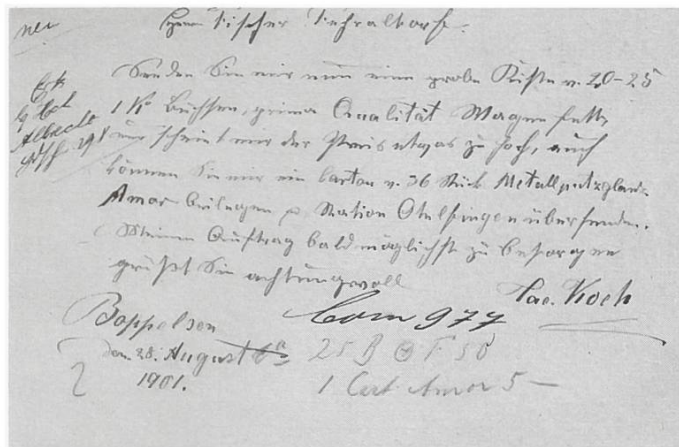 neu
Herrn Tischer Fehraltorf.
Senden Sie mir nun eine probe Kiste v. 20-25
1 Ko Büchsen, prima Qualität Wagenfett,
nur scheint mir der Preis etwas zu hoch, auch
können Sie mir ein Carton v. 36 Stück Metallputzglanz
Amor beilegen p Station Otelfingen übersenden.
Meinen Auftrag baldmöglichst zu besorgen
grüßt Sie achtungsvoll
Jac. Koch
Boppelsen
den 28. August
1901.
Com 977
1 Cart Amor 5 —